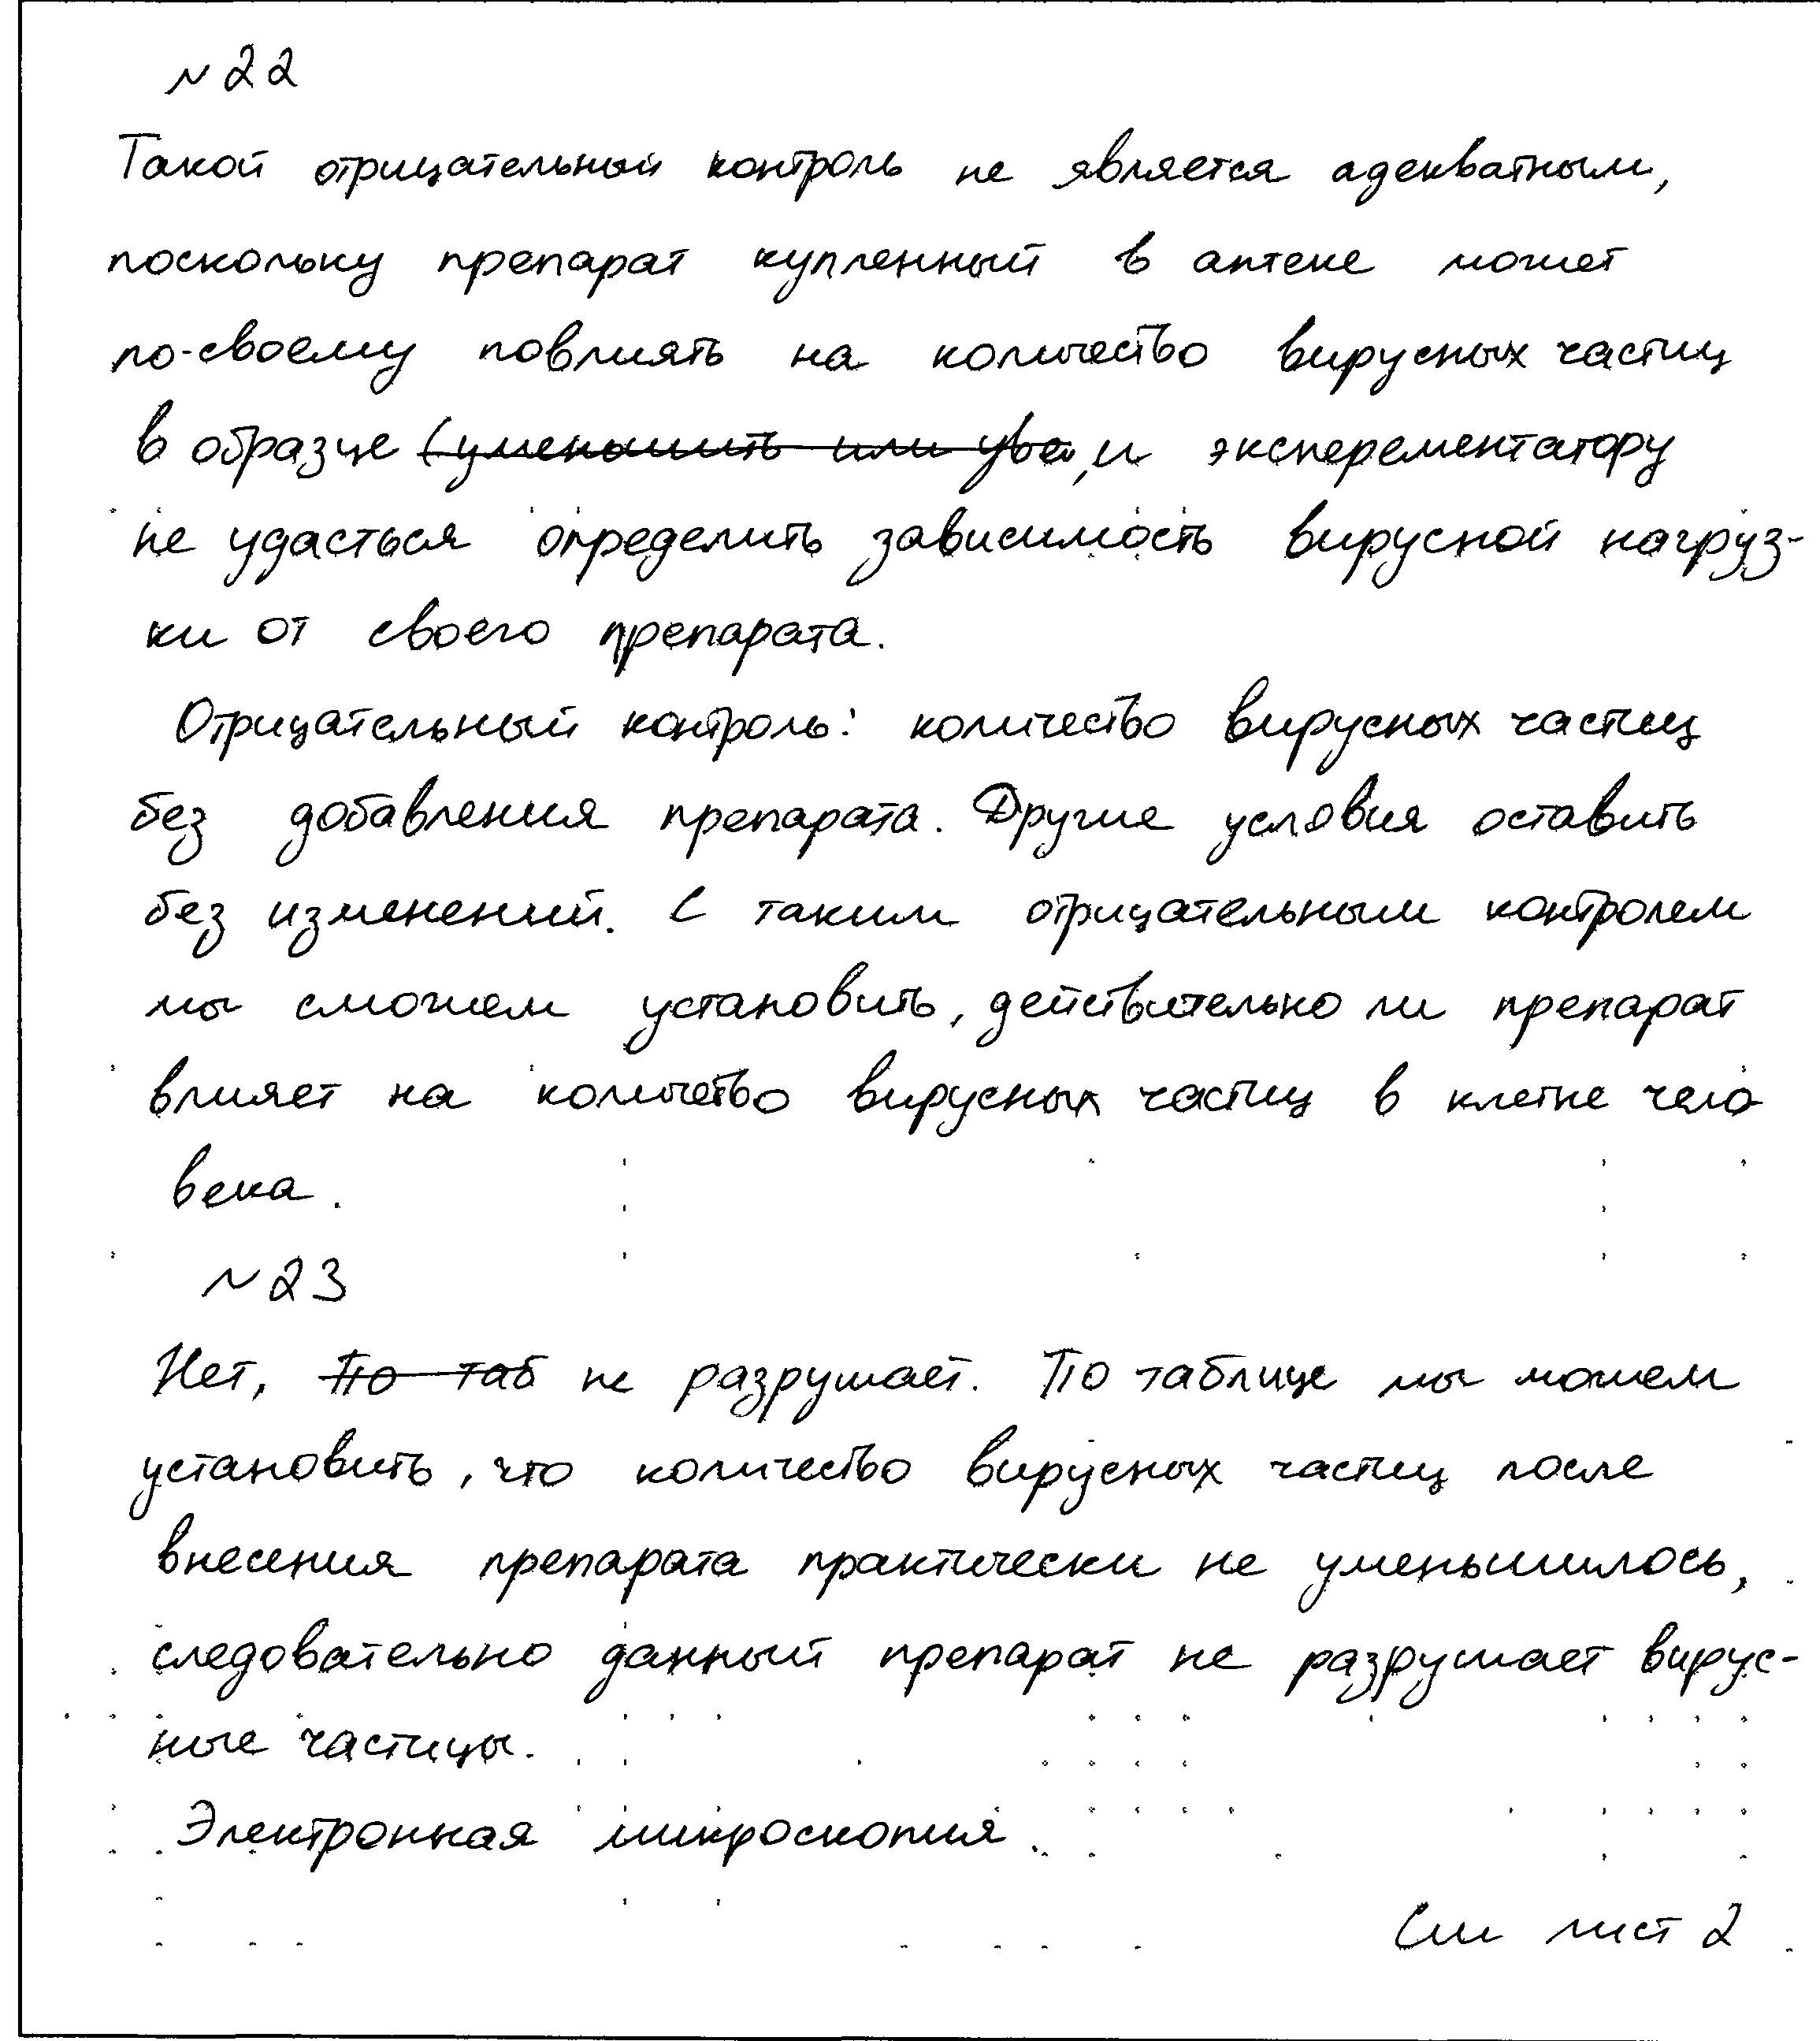 №22
Такой отрицательный контроль не является адекватным,
поскольку препарат купленный в аптеке может
по-своему повлиять на количество вирусных частиц
в образце (уменьшить или уве, и эксперементатору
не удасться определить зависимость вирусной нагруз-
ки от своего препарата.
Отрицательный контроль: количество вирусных частиц
без добавления препарата. Другие условия оставить
без изменений. С таким отрицательным контролем
мы сможем установить, действительно ли препарат
влияет на количетво вирусных частиц в клетке чело
века.
№23
Нет, По таб не разрушает. По таблице мы можем
установить, что количество вирусных частиц после
внесения препарата практически не уменьшилось,
следовательно данный препарат не разрушает вирус-
ные частицы.
Электронная микроскопия.
См лист 2